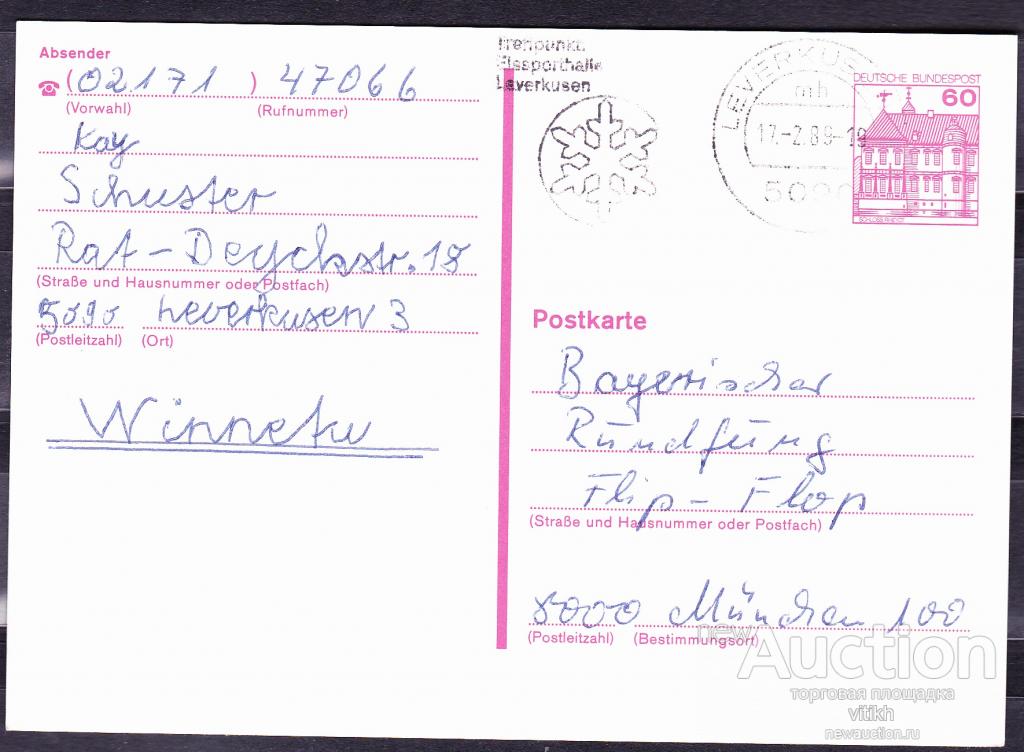 Absender
(02171) 47066
(Vorwahl) (Rufnummer)
Kay
Schuster
Rat-Deychstr. 18
(Straße und Hausnummer oder Postfach)
5090 Leverkusen 3
(Postleitzahl) (Ort)
Winnetu
Treffpunkt
Eissporthalle
Leverkusen
LEVERKUSEN
mh
17.-2.89-18
DEUTSCHE BUNDESPOST
60
SCHLOSS RHEYDT
Postkarte
Bayerischer
Rundfung
Flip-Flop
(Straße und Hausnummer oder Postfach)
8000 München 100
(Postleitzahl) (Bestimmungsort)
newAuction
торговая площадка
vitikh
newauction.ru